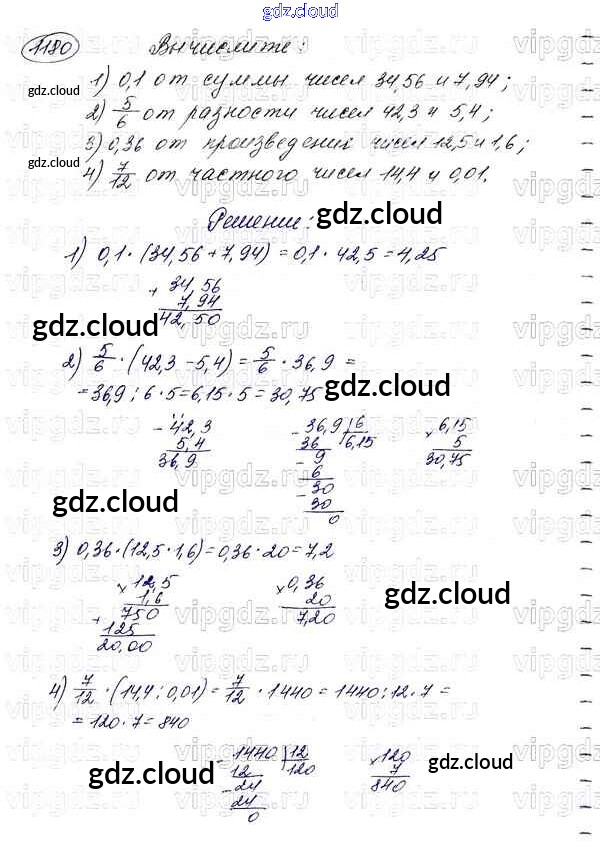 gdz.cloud
1180 Вычислите:
1) 0,1 от суммы чисел 34,56 и 7,94;
gdz.cloud
2) 5/6 от разности чисел 42,3 и 5,4;
3) 0,36 от произведения чисел 12,5 и 1,6;
gdz.cloud
4) 7/12 от частного чисел 14,4 и 0,01.
Решение:
gdz.cloud
1) 0,1 · (34,56 + 7,94) = 0,1 · 42,5 = 4,25
+ 34,56
7,94
42,50
gdz.cloud
2) 5/6 · (42,3 - 5,4) = 5/6 · 36,9 =
= 36,9 : 6 · 5 = 6,15 · 5 = 30,75
gdz.cloud
- 42,3
5,4
36,9
- 36,9 | 6
36 | 6,15
- 9
6
- 30
30
0
× 6,15
5
30,75
gdz.cloud
gdz.cloud
3) 0,36 · (12,5 · 1,6) = 0,36 · 20 = 7,2
× 12,5
1,6
+ 750
125
20,00
× 0,36
20
7,20
gdz.cloud
gdz.cloud
4) 7/12 · (14,4 : 0,01) = 7/12 · 1440 = 1440 : 12 · 7 =
= 120 · 7 = 840
- 1440 | 12
12 | 120
- 24
24
0
× 120
7
840
gdz.cloud
gdz.cloud
gdz.cloud
vipgdz.ru